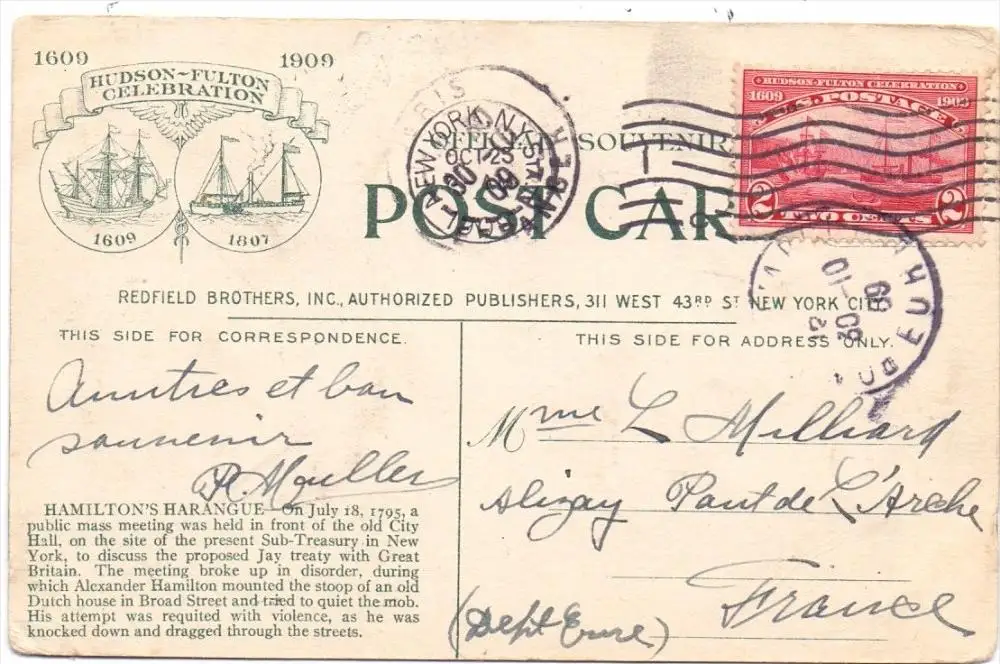 1609 1909
HUDSON-FULTON
CELEBRATION
1609 1807
OFFICIAL SOUVENIR
POST CAR
HUDSON-FULTON CELEBRATION
1609 1909
U.S. POSTAGE
2 TWO CENTS 2
NEW YORK, N.Y.
OCT 23
09
REDFIELD BROTHERS, INC., AUTHORIZED PUBLISHERS, 311 WEST 43RD ST NEW YORK CITY
THIS SIDE FOR CORRESPONDENCE.
Amitiés et bon
souvenir
R. Moulles
HAMILTON'S HARANGUE—On July 18, 1795, a
public mass meeting was held in front of the old City
Hall, on the site of the present Sub-Treasury in New
York, to discuss the proposed Jay treaty with Great
Britain. The meeting broke up in disorder, during
which Alexander Hamilton mounted the stoop of an old
Dutch house in Broad Street and tried to quiet the mob.
His attempt was requited with violence, as he was
knocked down and dragged through the streets.
THIS SIDE FOR ADDRESS ONLY.
Mme L Milliard
Alizay Pont de L'Arche
France
(Dept Eure)